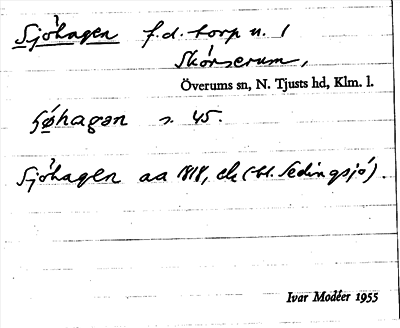 Sjöhagen f.d. torp u. /
Skörserum,
Överums sn, N. Tjusts hd, Klm. l.
Söhagen s. 45.
Sjöhagen aa 1818, ek (bl. Sedingsjö).
Ivar Modéer 1955